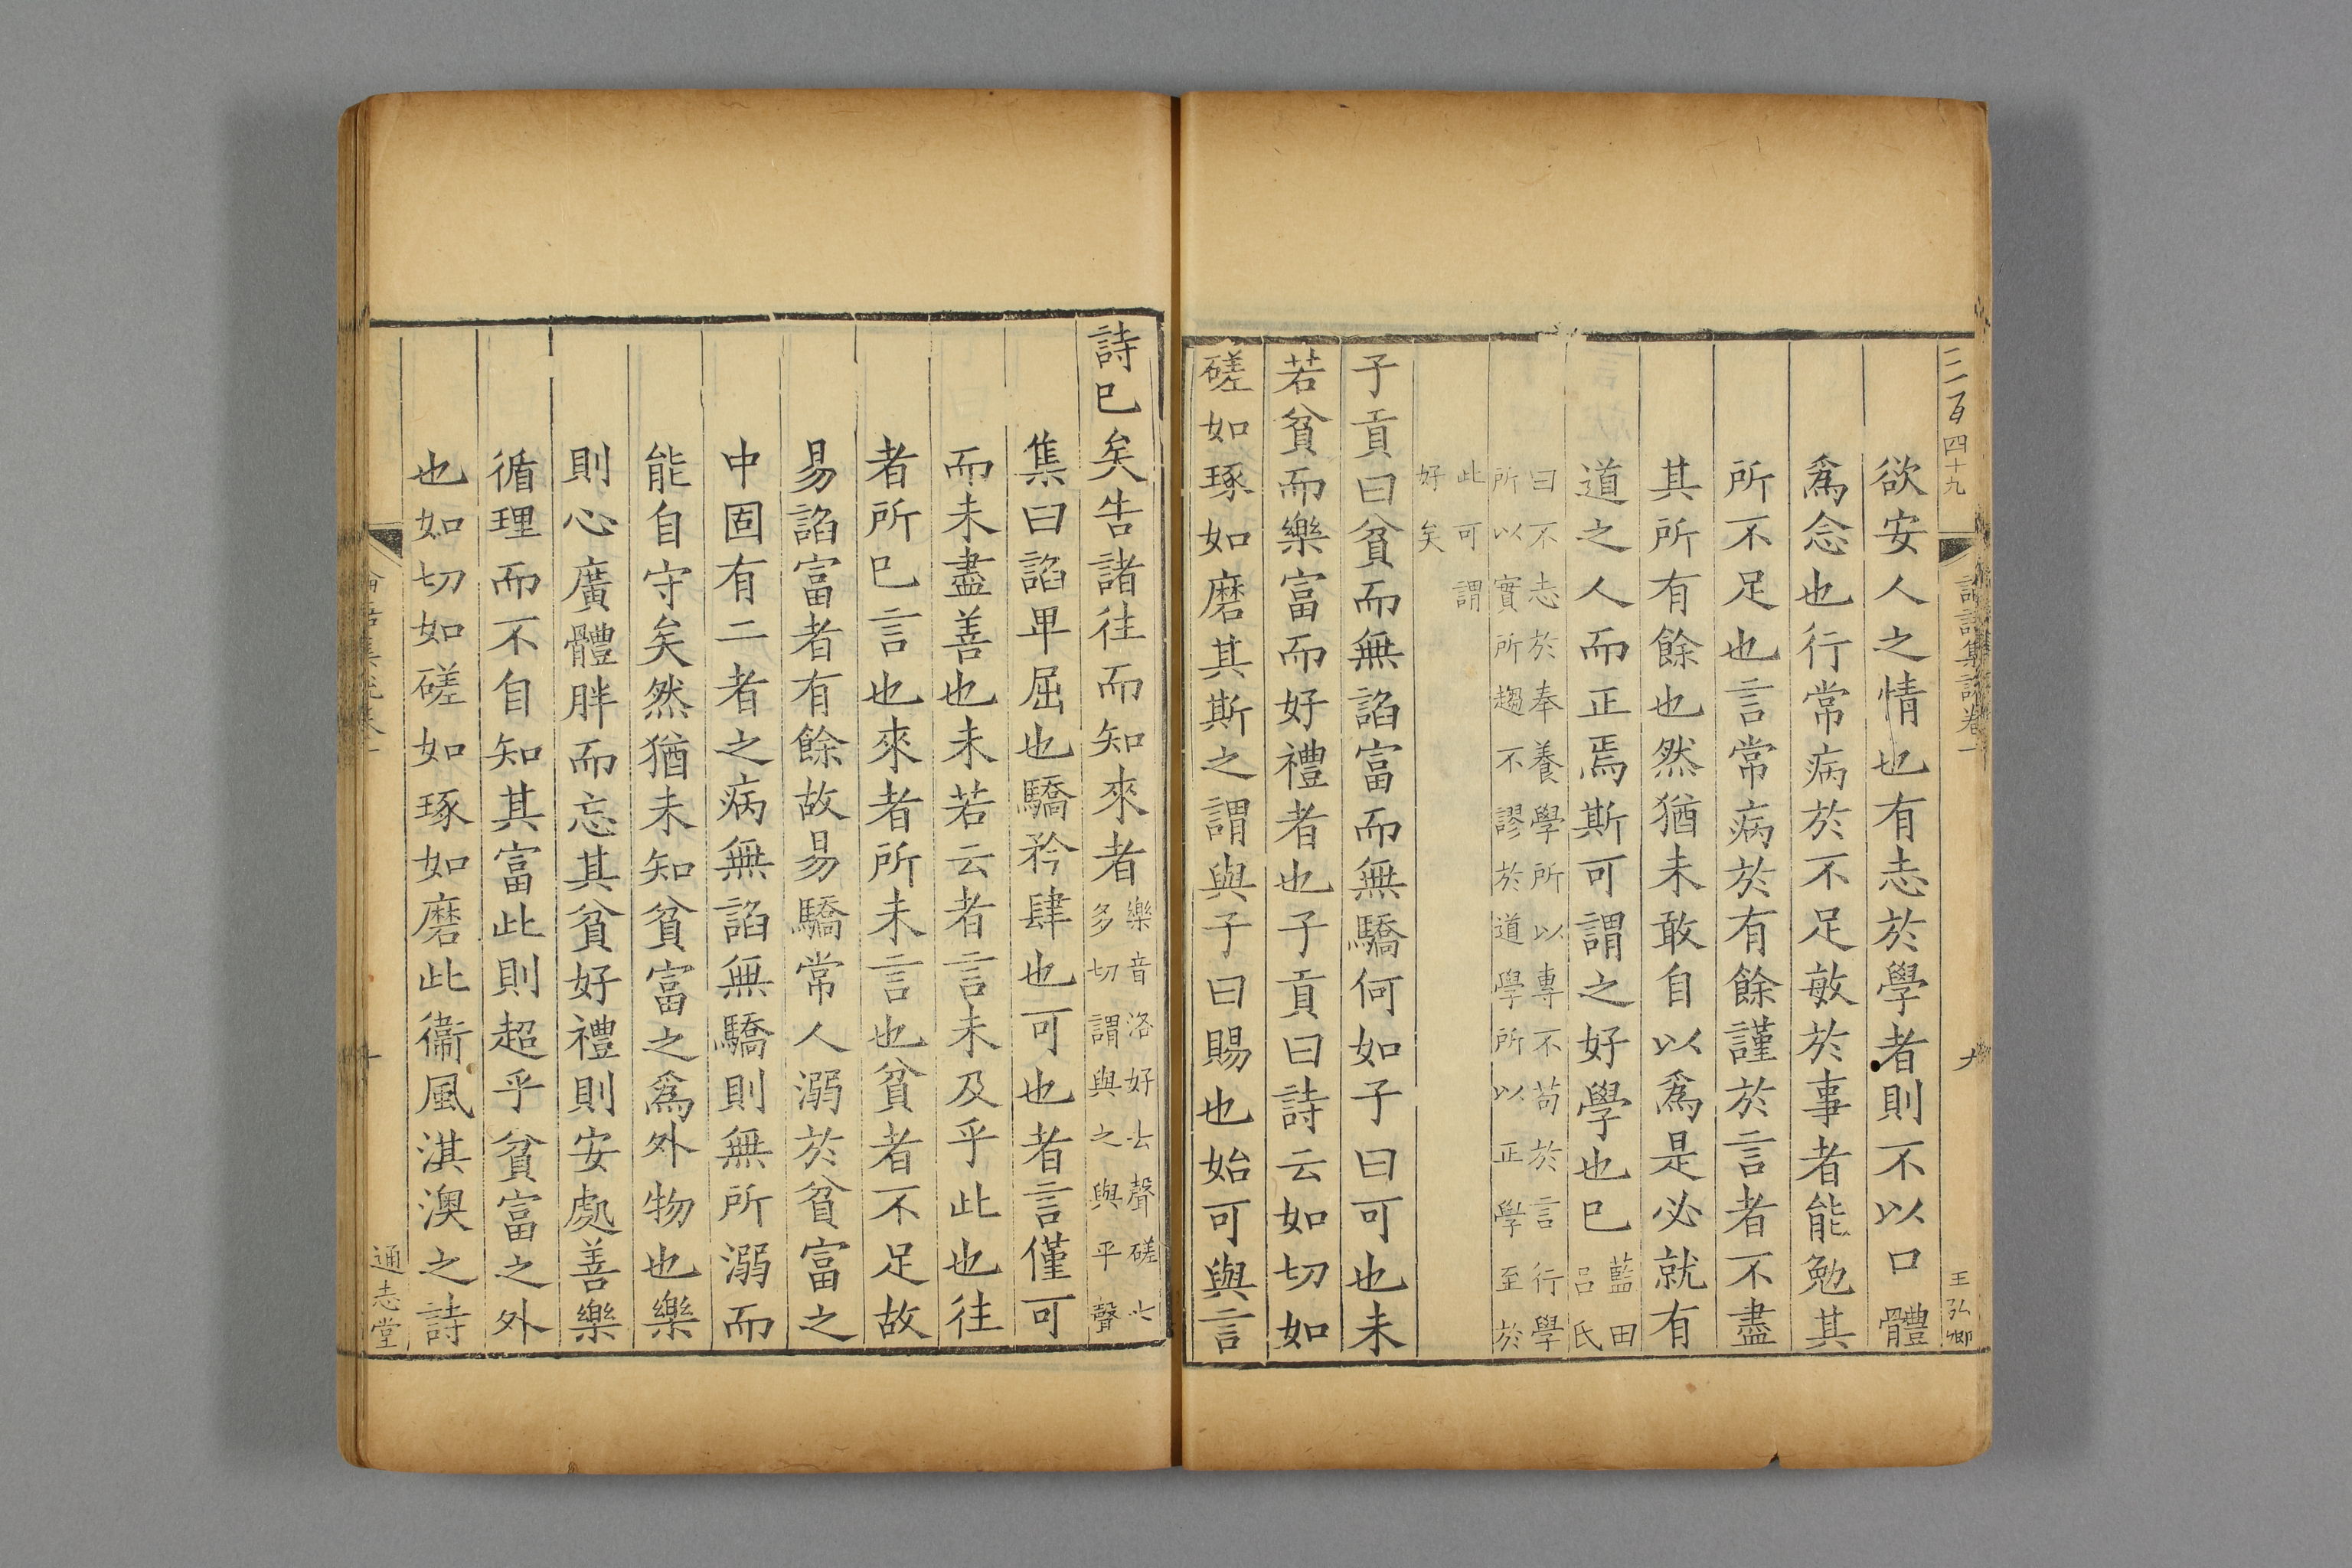 三百四十九
王弘卿
欲安人之情也有志於學者則不以口體
爲念也行常病於不足敏於事者能勉其
所不足也言常病於有餘謹於言者不盡
其所有餘也然猶未敢自以爲是必就有
道之人而正焉斯可謂之好學也已藍田呂氏
曰不志於奉養學所以專不苟於言行學
所以實所趨不謬於道學所以正學至於
此可謂
好矣
子貢曰貧而無諂富而無驕何如子曰可也未
若貧而樂富而好禮者也子貢曰詩云如切如
磋如琢如磨其斯之謂與子曰賜也始可與言
詩已矣告諸往而知來者樂音洛好去聲磋七多切謂與之與平聲
集曰諂卑屈也驕矜肆也可也者言僅可
而未盡善也未若云者言未及乎此也往
者所已言也來者所未言也貧者不足故
易諂富者有餘故易驕常人溺於貧富之
中固有二者之病無諂無驕則無所溺而
能自守矣然猶未知貧富之爲外物也樂
則心廣體胖而忘其貧好禮則安處善樂
循理而不自知其富此則超乎貧富之外
也如切如磋如琢如磨此衞風淇澳之詩
通志堂